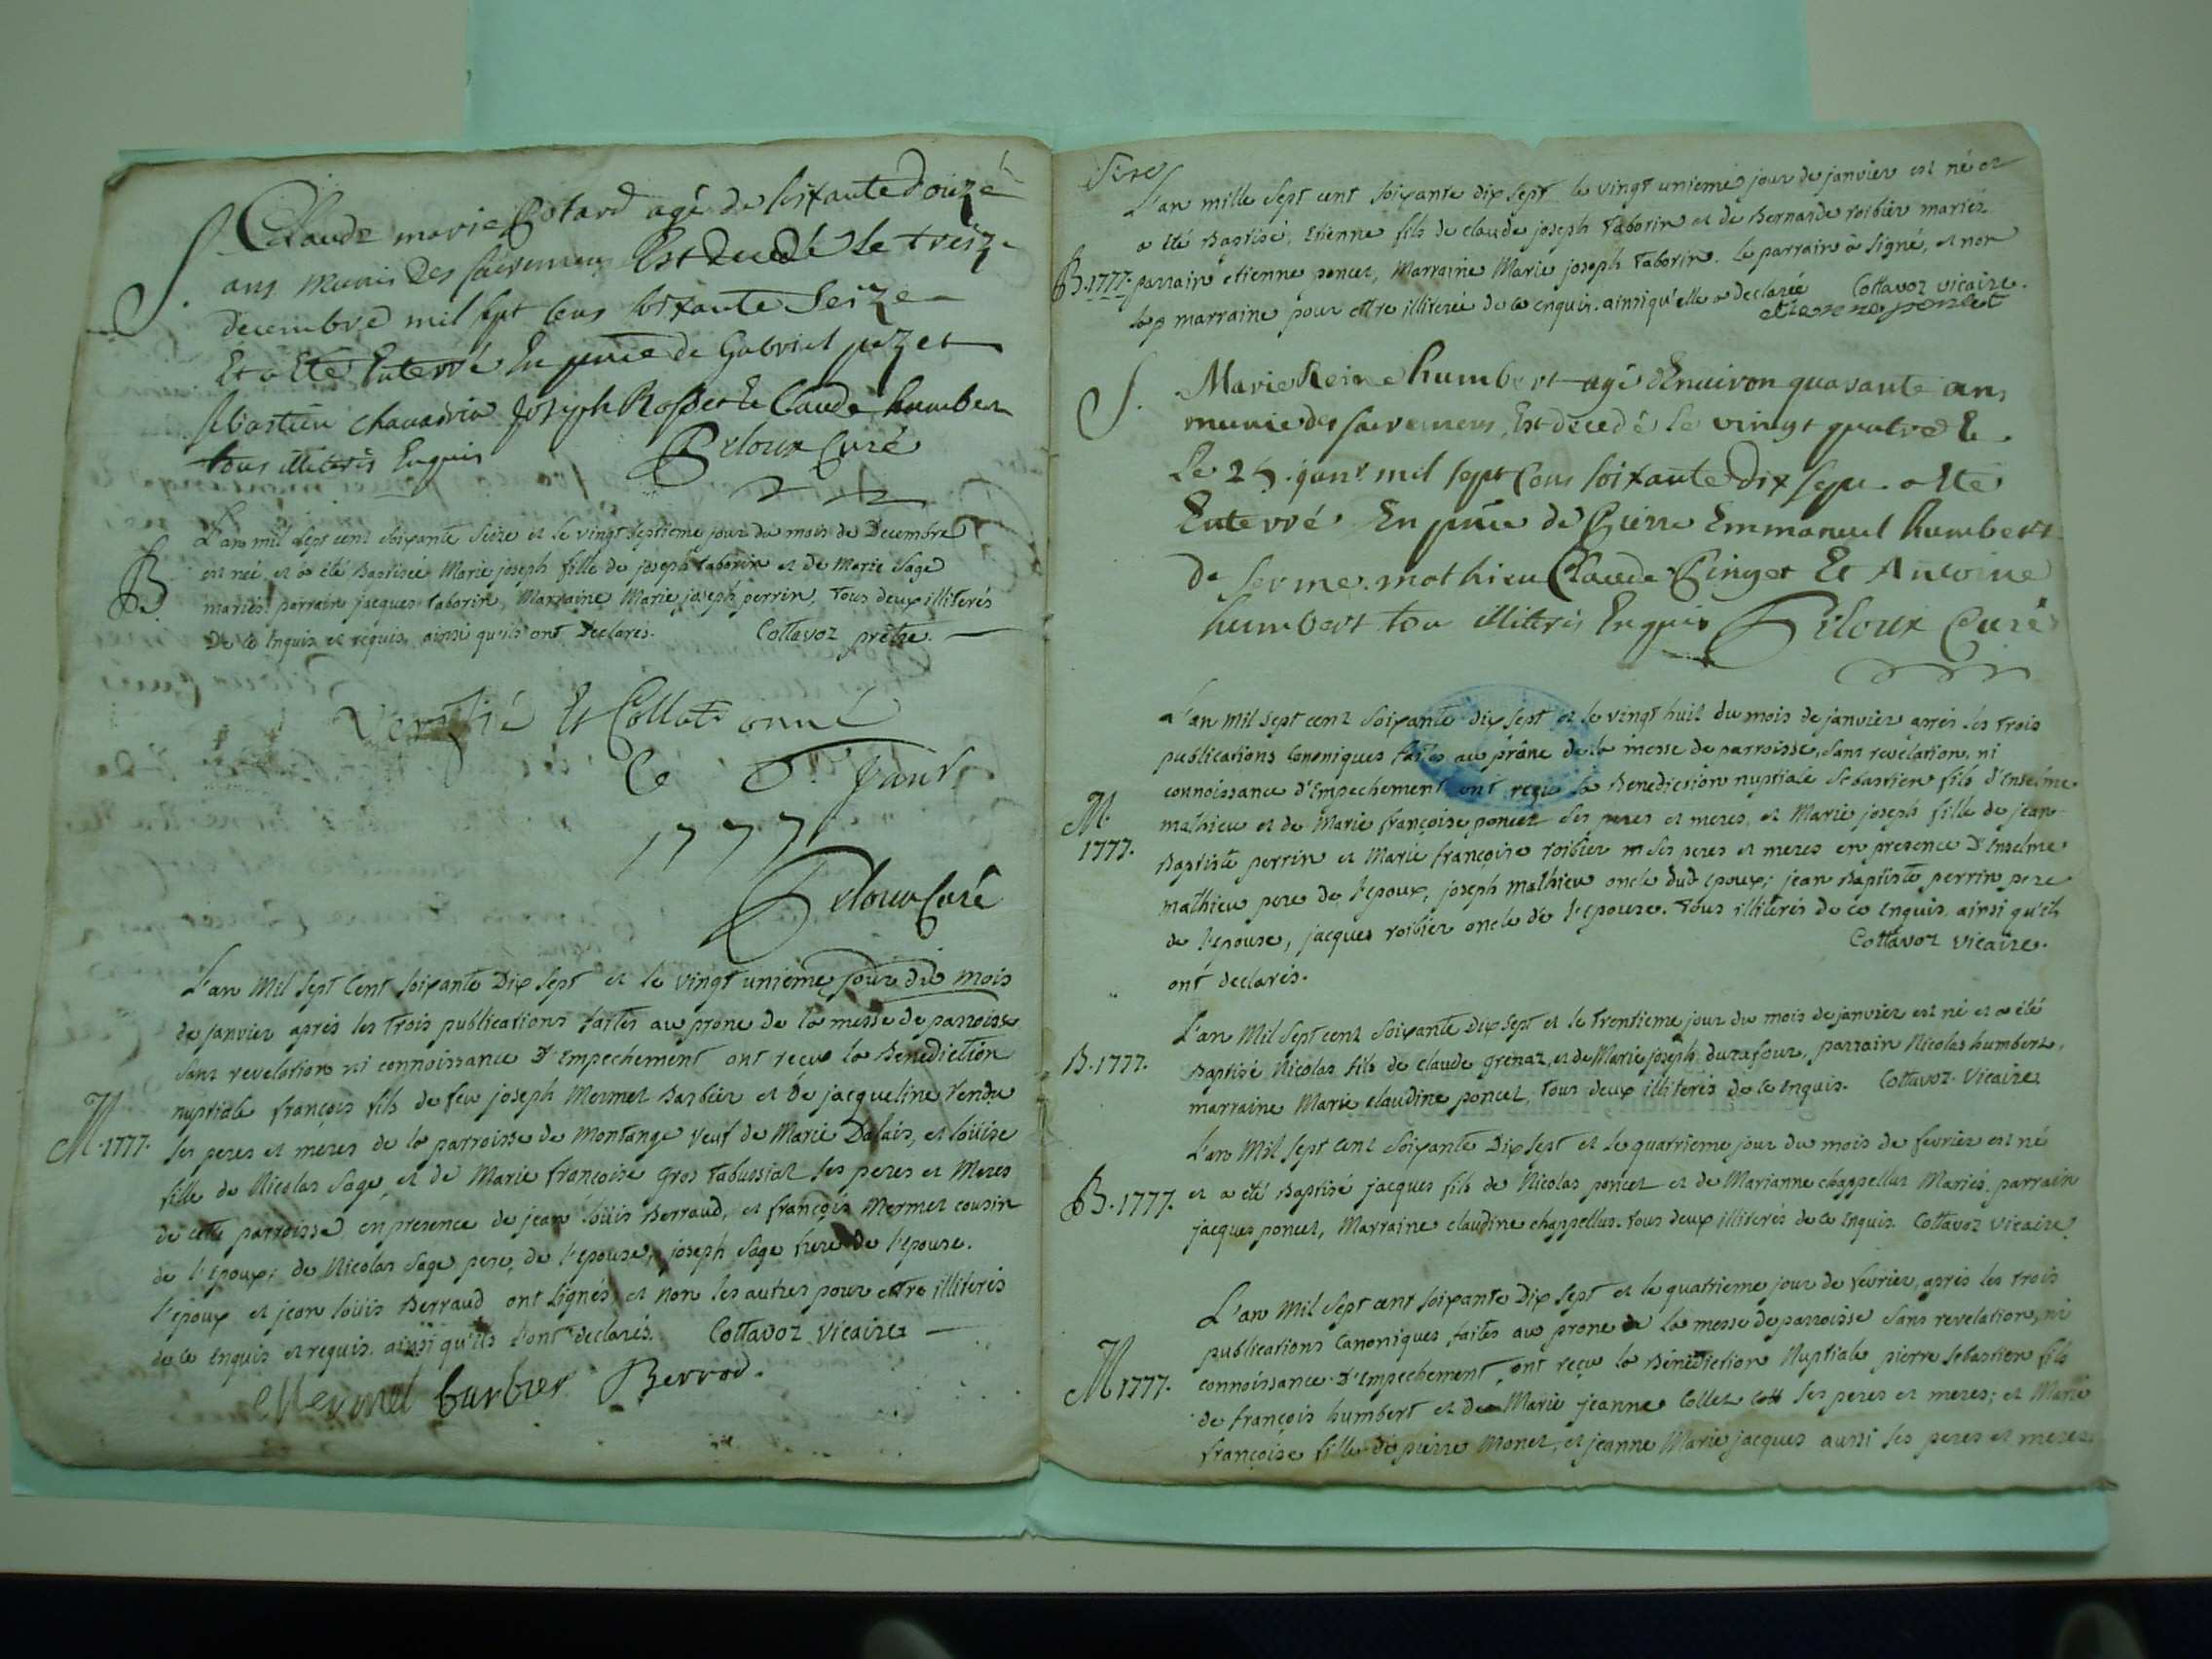 S. Claude marie agé de soixante douze
ans muni des sacremens Est decedé le treize
decembre mil sept cens soixante Seize
Et a Eté Enterré En pnce de Gabriel pozet
Joseph Rosset Et Claude humbert
tous illiterés Enquis Curé
B. L'an mil sept cent soixante seize et le vingt septieme jour du mois de Decembre
est née et a été Baptisée Marie joseph fille de joseph taborin et de Marie Sage
mariés. parrain jacques taborin, Marraine Marie joseph perrin, tous deux illiterés
de ce enquis et requis. ainsi qu'ils ont Declarés. Cottavoz prêtre.
Verifié Et Collationné
Ce janv.
1777
Curé
L'an Mil Sept Cent soixante Dix sept et le vingt unieme jour du mois
de janvier après les trois publications faites au prone de la messe de parroisse
sans revelation ni connoissance d'empechement ont recu la Benediction
nuptiale françois fils de feu joseph Mermet Barbier et de jacqueline tendu
M. 1777. ses peres et meres de la parroisse de Montange veuf de Marie Dalais, et loüise
fille de Nicolas Sage, et de Marie françoise gros tabussiat ses peres et Meres
de cette parroisse en presence de jean loüis Berraud, et françois Mermet cousin
de l'epoux; de Nicolas Sage pere, de l'epouse, joseph Sage frere de l'epouse.
l'epoux et jean loüis Berraud ont signés et non les autres pour etre illiterés
de ce enquis et requis. ainsi qu'ils l'ont declarés. Cottavoz Vicaire
Mermet barbier Berrod.
L'an mille sept cent soixante dix sept le vingt unieme jour de janvier est né et
a été Baptisé, Etienne fils de claude joseph taborin et de Bernarde roibier mariés
B. 1777. parrain etienne poncet, Marraine Marie joseph taborin. le parrain à signé, et non
la marraine pour etre illiterée de ce enquis. ainsi qu'elle a declarée Cottavoz vicaire.
etienne poncet
S. Marie Reine humbert agé d'Enuiron quarante ans
munie des sacremens, Est decedé le vingt quatre Et
Le 25. janv. mil sept Cens soixante dix sept a Eté
Enterré En pnce de Pierre Emmanuel humbert
de mathieu Claude Pinget Et Antoine
humbert tou illiterés Enquis Curé
L'an mil sept cent soixante dix sept et le vingt huit du mois de janvier après les trois
publications canoniques faites au prône de la messe de parroisse, sans revelation, ni
connoissance d'Empechement ont reçu la Benediction nuptiale Sebastien fils d'Enselme
M. mathieu et de Marie françoise poncet ses peres et meres, et Marie joseph fille de jean
1777. Baptiste perrin et Marie françoise roibier ses peres et meres en presence d'Enselme
mathieu pere de l'epoux, joseph mathieu oncle dud epoux; jean Baptiste perrin pere
de l'epouse, jacques roibier oncle de l'epouse. tous illiterés de ce enquis. ainsi qu'ils
ont declarés. Cottavoz vicaire.
L'an Mil Sept cent soixante Dix sept et le trentieme jour du mois de janvier est né et a été
B. 1777. Baptisé Nicolas fils de claude grenat, et de Marie joseph durafour, parrain Nicolas humbert,
marraine Marie claudine poncet, tous deux illiterés de ce enquis. Cottavoz Vicaire
L'an Mil sept cent soixante Dix sept et le quatrieme jour du mois de fevrier est né
B. 1777. et a été Baptisé jacques fils de Nicolas poncet et de Marianne chappellus Mariés. parrain
jacques poncet, Marraine claudine chappellus. tous deux illiterés de ce enquis. Cottavoz vicaire
L'an Mil sept cent soixante Dix sept et le quatrieme jour de fevrier, après les trois
publications canoniques faites au prone de la messe de parroisse sans revelation, ni
M 1777. connoissance d'Empechement, ont reçu la Bénediction Nuptiale pierre sebastien fils
de françois humbert et de Marie jeanne Collet ses peres et meres; et Marie
françoise fille de pierre Monet, et jeanne Marie jacques aussi ses peres et meres